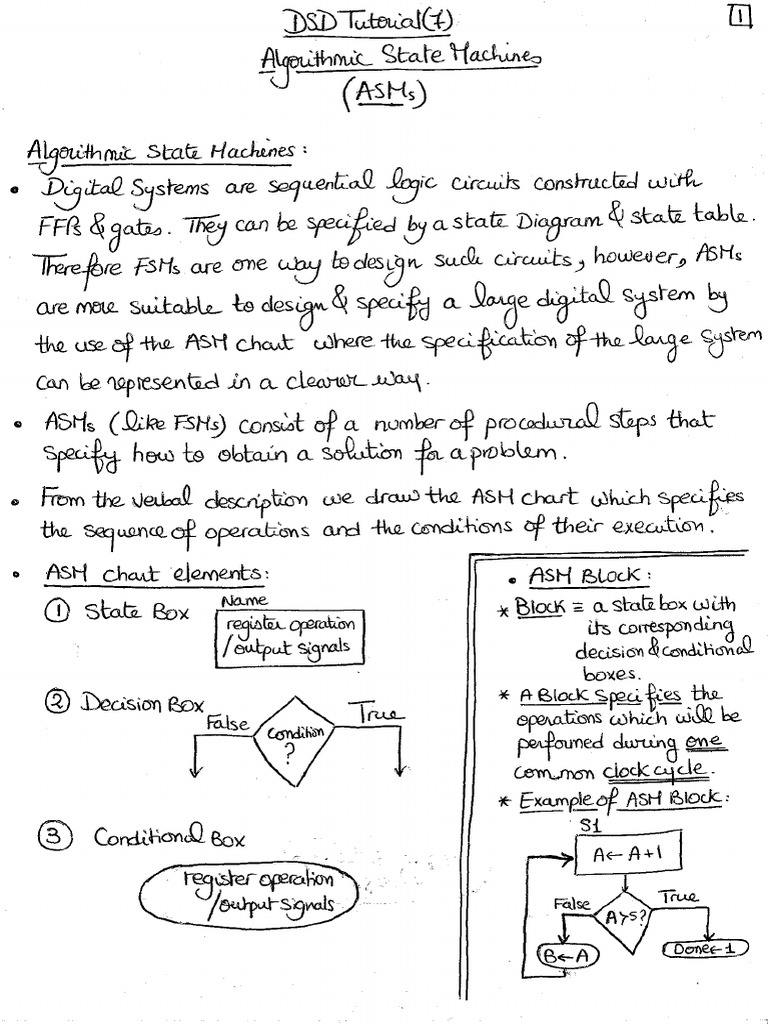 DSD Tutorial(7)
1
Algorithmic State Machines
(ASMs)
Algorithmic State Machines:
• Digital Systems are sequential logic circuits constructed with
FFs & gates. They can be specified by a state Diagram & state table.
Therefore FSMs are one way to design such circuits, however, ASMs
are more suitable to design & specify a large digital system by
the use of the ASM chart where the specification of the large system
can be represented in a clearer way.
• ASMs (like FSMs) consist of a number of procedural steps that
specify how to obtain a solution for a problem.
• From the verbal description we draw the ASM chart which specifies
the sequence of operations and the conditions of their execution.
• ASM chart elements:
① State Box
Name
register operation
/output signals
② Decision Box
False
Condition
?
True
③ Conditional Box
register operation
/output signals
• ASM BLOCK:
* BLOCK ≡ a state box with
its corresponding
decision & conditional
boxes.
* A BLOCK Specifies the
operations which will be
performed during one
common clock cycle.
* Example of ASM BLOCK:
S1
A←A+1
False
A>5?
True
B←A
Done←1